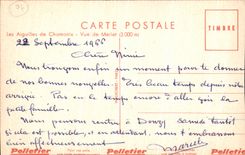 CARTE POSTALE
Les Aiguilles de Chamonix - Vue de Merlet (2.000 m)
TIMBRE
22 Septembre 1966
Chère Mimi
Nous trouvons enfin un moment pour te donner
de nos bonnes nouvelles. Très beau temps depuis notre
arrivée. Pas eu le temps encore d'aller voir la
petite famille.
Nous pensons rentrer à Douzy Samedi tantôt
si cela est possible, et en attendant, nous t'embrassons
bien affectueusement
Marcel
Pelletier Pelletier Pelletier